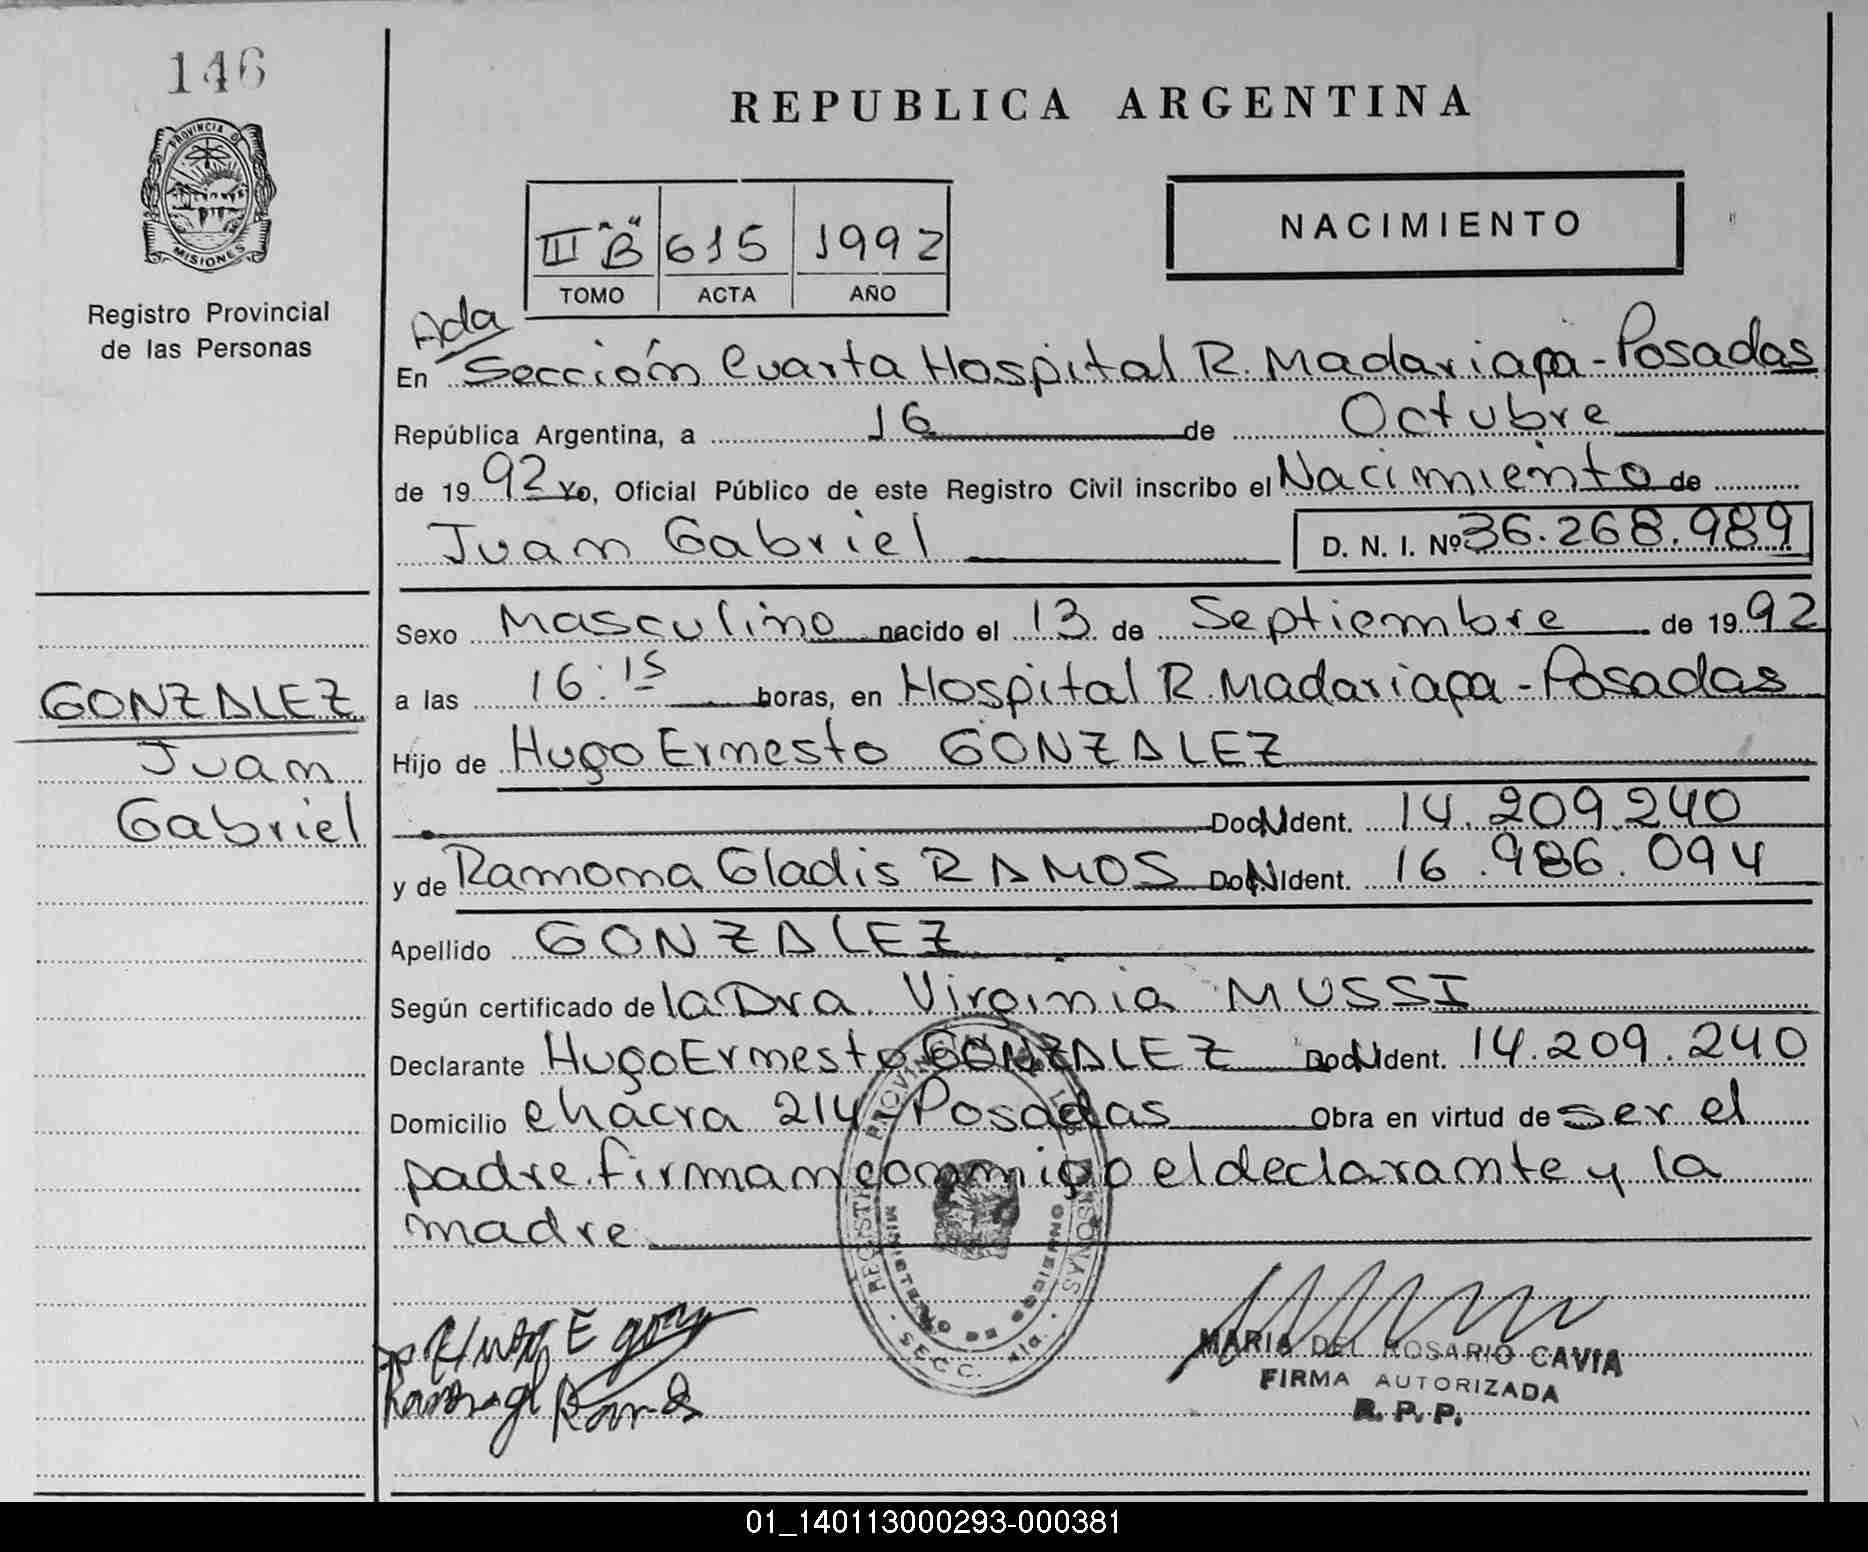 146
PROVINCIA DE
MISIONES
Registro Provincial
de las Personas
GONZALEZ
Juan
Gabriel
REPUBLICA ARGENTINA
III "B" 615 1992
TOMO ACTA AÑO
NACIMIENTO
Ada
En Sección Cuarta Hospital R. Madariaga - Posadas
República Argentina, a 16 de Octubre
de 19 92 Yo, Oficial Público de este Registro Civil inscribo el Nacimiento de
Juan Gabriel D. N. I. Nº 36.268.989
Sexo Masculino nacido el 13 de Septiembre de 19 92
a las 16:15 horas, en Hospital R. Madariaga - Posadas
Hijo de Hugo Ernesto GONZALEZ
Doc N Ident. 14.209.240
y de Ramona Gladis RAMOS Doc N Ident. 16.986.094
Apellido GONZALEZ
Según certificado de la Dra. Virginia MUSSI
Declarante Hugo Ernesto GONZALEZ Doc N Ident. 14.209.240
Domicilio chacra 214 Posadas Obra en virtud de ser el
padre. firman conmigo el declarante y la
madre
REGISTRO PROVINCIAL DE LAS PERSONAS
MINISTERIO DE GOBIERNO
SECC. 4ta.
MARIA DEL ROSARIO CAVIA
FIRMA AUTORIZADA
R. P. P.
01_140113000293-000381